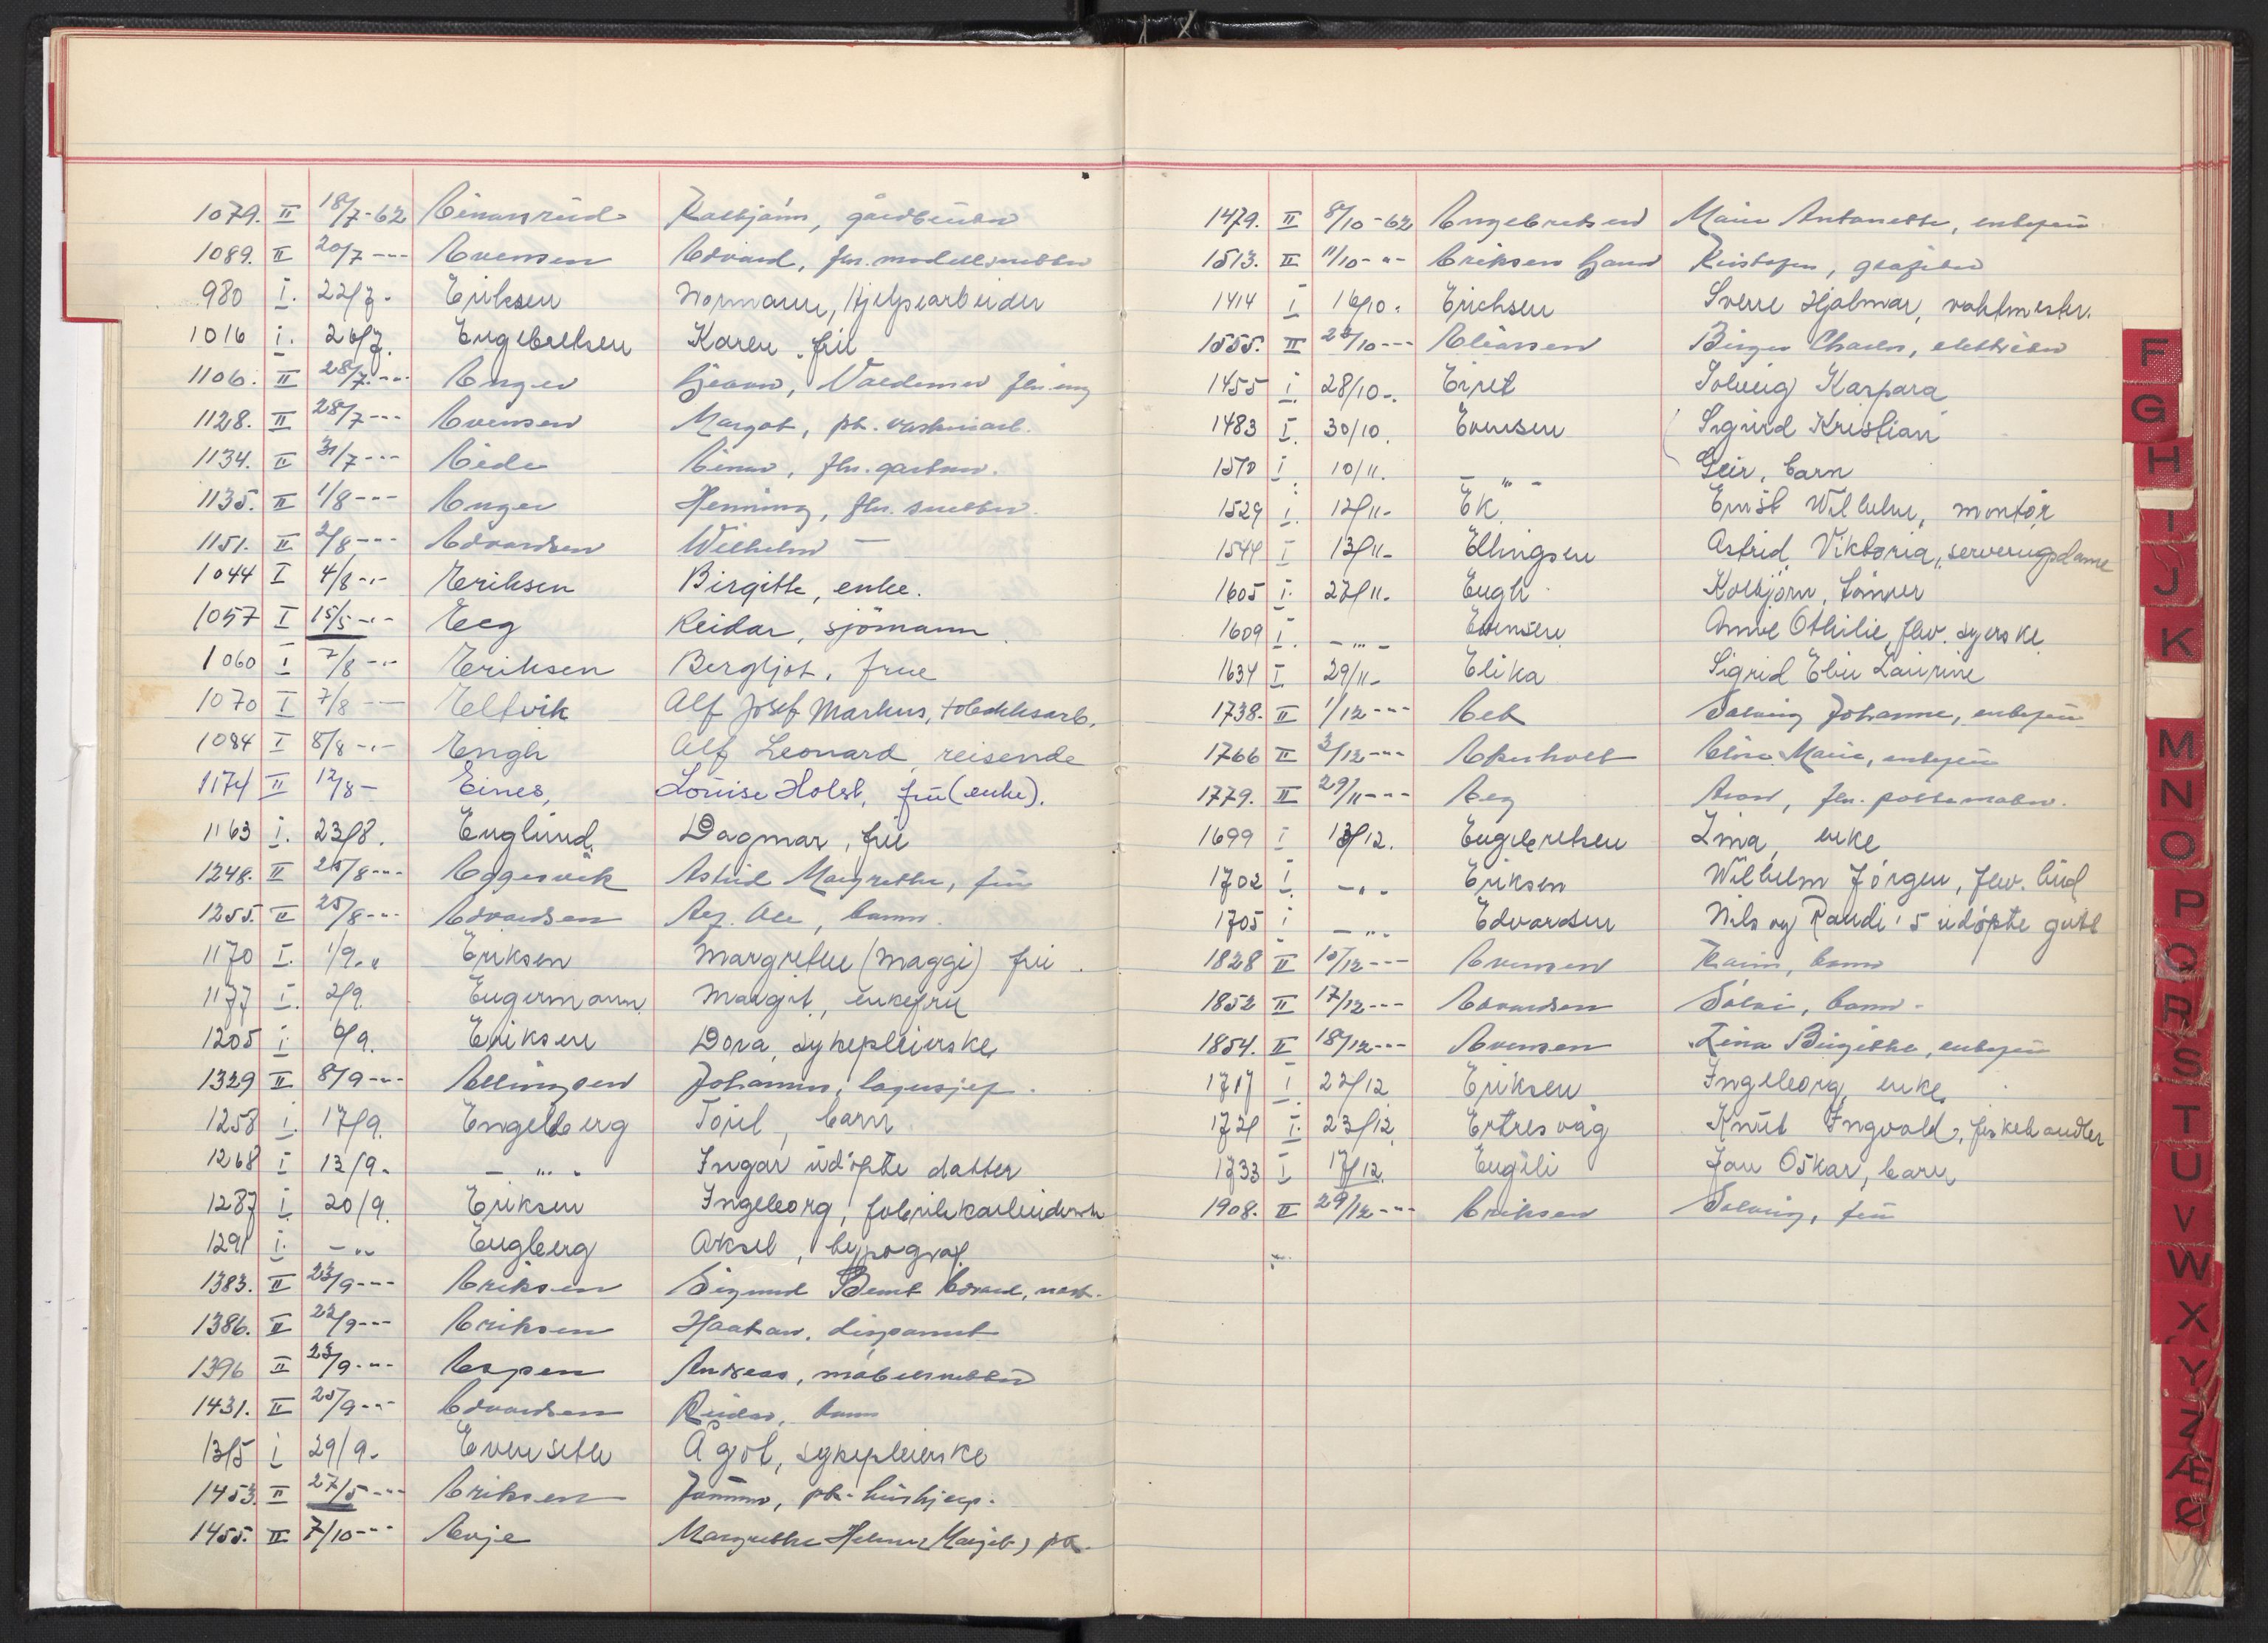 1079. II 18/7-62 Einarsrud Kolbjørn, gårdbruker
1089. II 20/7 --- Evensen Edvard, fhv. modellsnekker
980 I. 22/7. Eriksen Normann, Hjelpearbeider
1016 i. 26/7. Engebretsen Karen frü
1106. II 28/7.--- Enger Valdemar
1128. II 28/7 --- Evensen Margot, pt.
1134. II 31/7 --- Eide Einar, fhv. gartner.
1135. II 1/8 --- Enger Henning, fhv. snekker.
1151. II 2/8 --- Edvardsen Wilhelm —
1044 I 4/8 -"- Eriksen Birgitte, enke.
1057 I 15/5 -"- Eeg Reidar, sjømann.
1060 I 7/8 -"- Eriksen Bergljot, frue
1070 I 7/8 --- Eltvik Alf Josef Markus, tobakksarb.
1084 I 8/8 -"- Engh Alf Leonard, reisende
1174 II 12/8 - Eines, Louise Holst, frü (enke).
1163 i. 23/8. Englund. Dagmar, frü
1248. II 25/8 --- Eggesvik Astrid Margrethe, frü
1255. II 25/8 --- Edvardsen barn.
1170 I. 1/9. " Eriksen Margrethe (Maggi) frü.
1177 I. 2/9. Engermann Margit, enkefrü
1205 i. 6/9. Eriksen Dora, sykepleierske
1329 II 8/9 --- Ellingsen Johannes, lagersjef.
1258 i. 17/9. Engelberg Toril, barn
1268 I 13/9. - " - Ingar üdøpte datter
1287 i. 20/9. Eriksen Ingeborg, fabrikkarbeiderske
1291 i. - " Engberg Aksel, typograf
1383. II 23/9 --- Eriksen Sigmund Bernt Edvard,
1386. II 22/9 --- Eriksen Haakon, disponent
1396 II 23/9 --- Espen Andreas, møbelsnekker
1431. II 25/9 --- Edvardsen Reidar, barn
1315 i 29/9. Evenseth Ågot, sykepleierske
1453. II 27/5 --- Eriksen pt. hüshjelp.
1455. II 7/10 --- Evje Margrethe Helene (Margit) pt.
1479. II 8/10 -62 Engebretsen Marie Antonette, enkefrü
1513. II 11/10 -"- Eriksen Kristofer, grafiker
1414 I 16/10. Erichsen Sverre Hjalmar, vaktmester.
1555. II 23/10 --- Eliassen Birger Charles, elektriker
1455 i. 28/10 -. Eiret Solveig Kaspara
1483 I. 30/10. Evensen Sigurd Kristian
1510 i. 10/11. - " - Geir, barn
1529 i. 12/11 - Ek Ernst Wilhelm, montør
1544 I 13/11 - Ellingsen Astrid Viktoria, serveringsdame
1605 i. 27/11 - Engh Kolbjørn, tømrer
1609 i. - " - Evensen Annie Othilie, fhv. syerske
1634 I. 29/11 - Elika Sigrid Elin Laurine
1738. II 1/12 --- Eek Solveig Johanne, enkefrü
1766 II 3/12 --- Ekerholt Elise Marie, enkefrü
1779. II 29/11 --- Eeg Aron, fhv. pottemaker.
1699 I 13/12. Engebretsen Lina, enke
1702 i. - " - Eriksen Wilhelm Jörgen, fhv. büd
1705 i - " - Edvardsen Nils og Randi's üdöpte gutt
1828 II 15/12 --- Evensen Karin, barn
1852 II 17/12 --- Edvardsen Sölvi, barn -
1854. II 18/12 --- Evensen Lina Birgitte, enkefrü
1717 I 22/12 Eriksen Ingeborg, enke.
1721 I. 23/12 Ertresvåg Knüt Ingvald, fiskehandler
1733 I 17/12. Engeli Jan Oskar, barn
1908. II 29/12 --- Eriksen Solveig, frü
F
G
H
I
J
K
M
N
O
P
Q
R
S
T
U
V
W
X
Y
Z
Æ
Ø